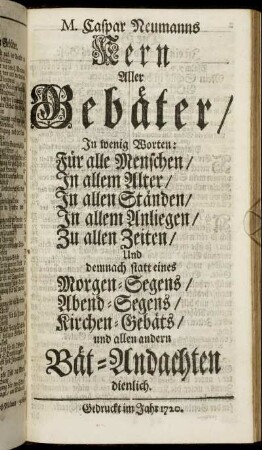 M. Caspar Neumanns
Kern
Aller
Gebäter/
In wenig Worten:
Für alle Menschen/
In allem Alter/
In allen Ständen/
In allem Anliegen/
Zu allen Zeiten/
Und
demnach statt eines
Morgen-Segens/
Abend-Segens/
Kirchen-Gebäts/
und allen andern
Bät-Andachten
dienlich.
Gedruckt im Jahr 1720.